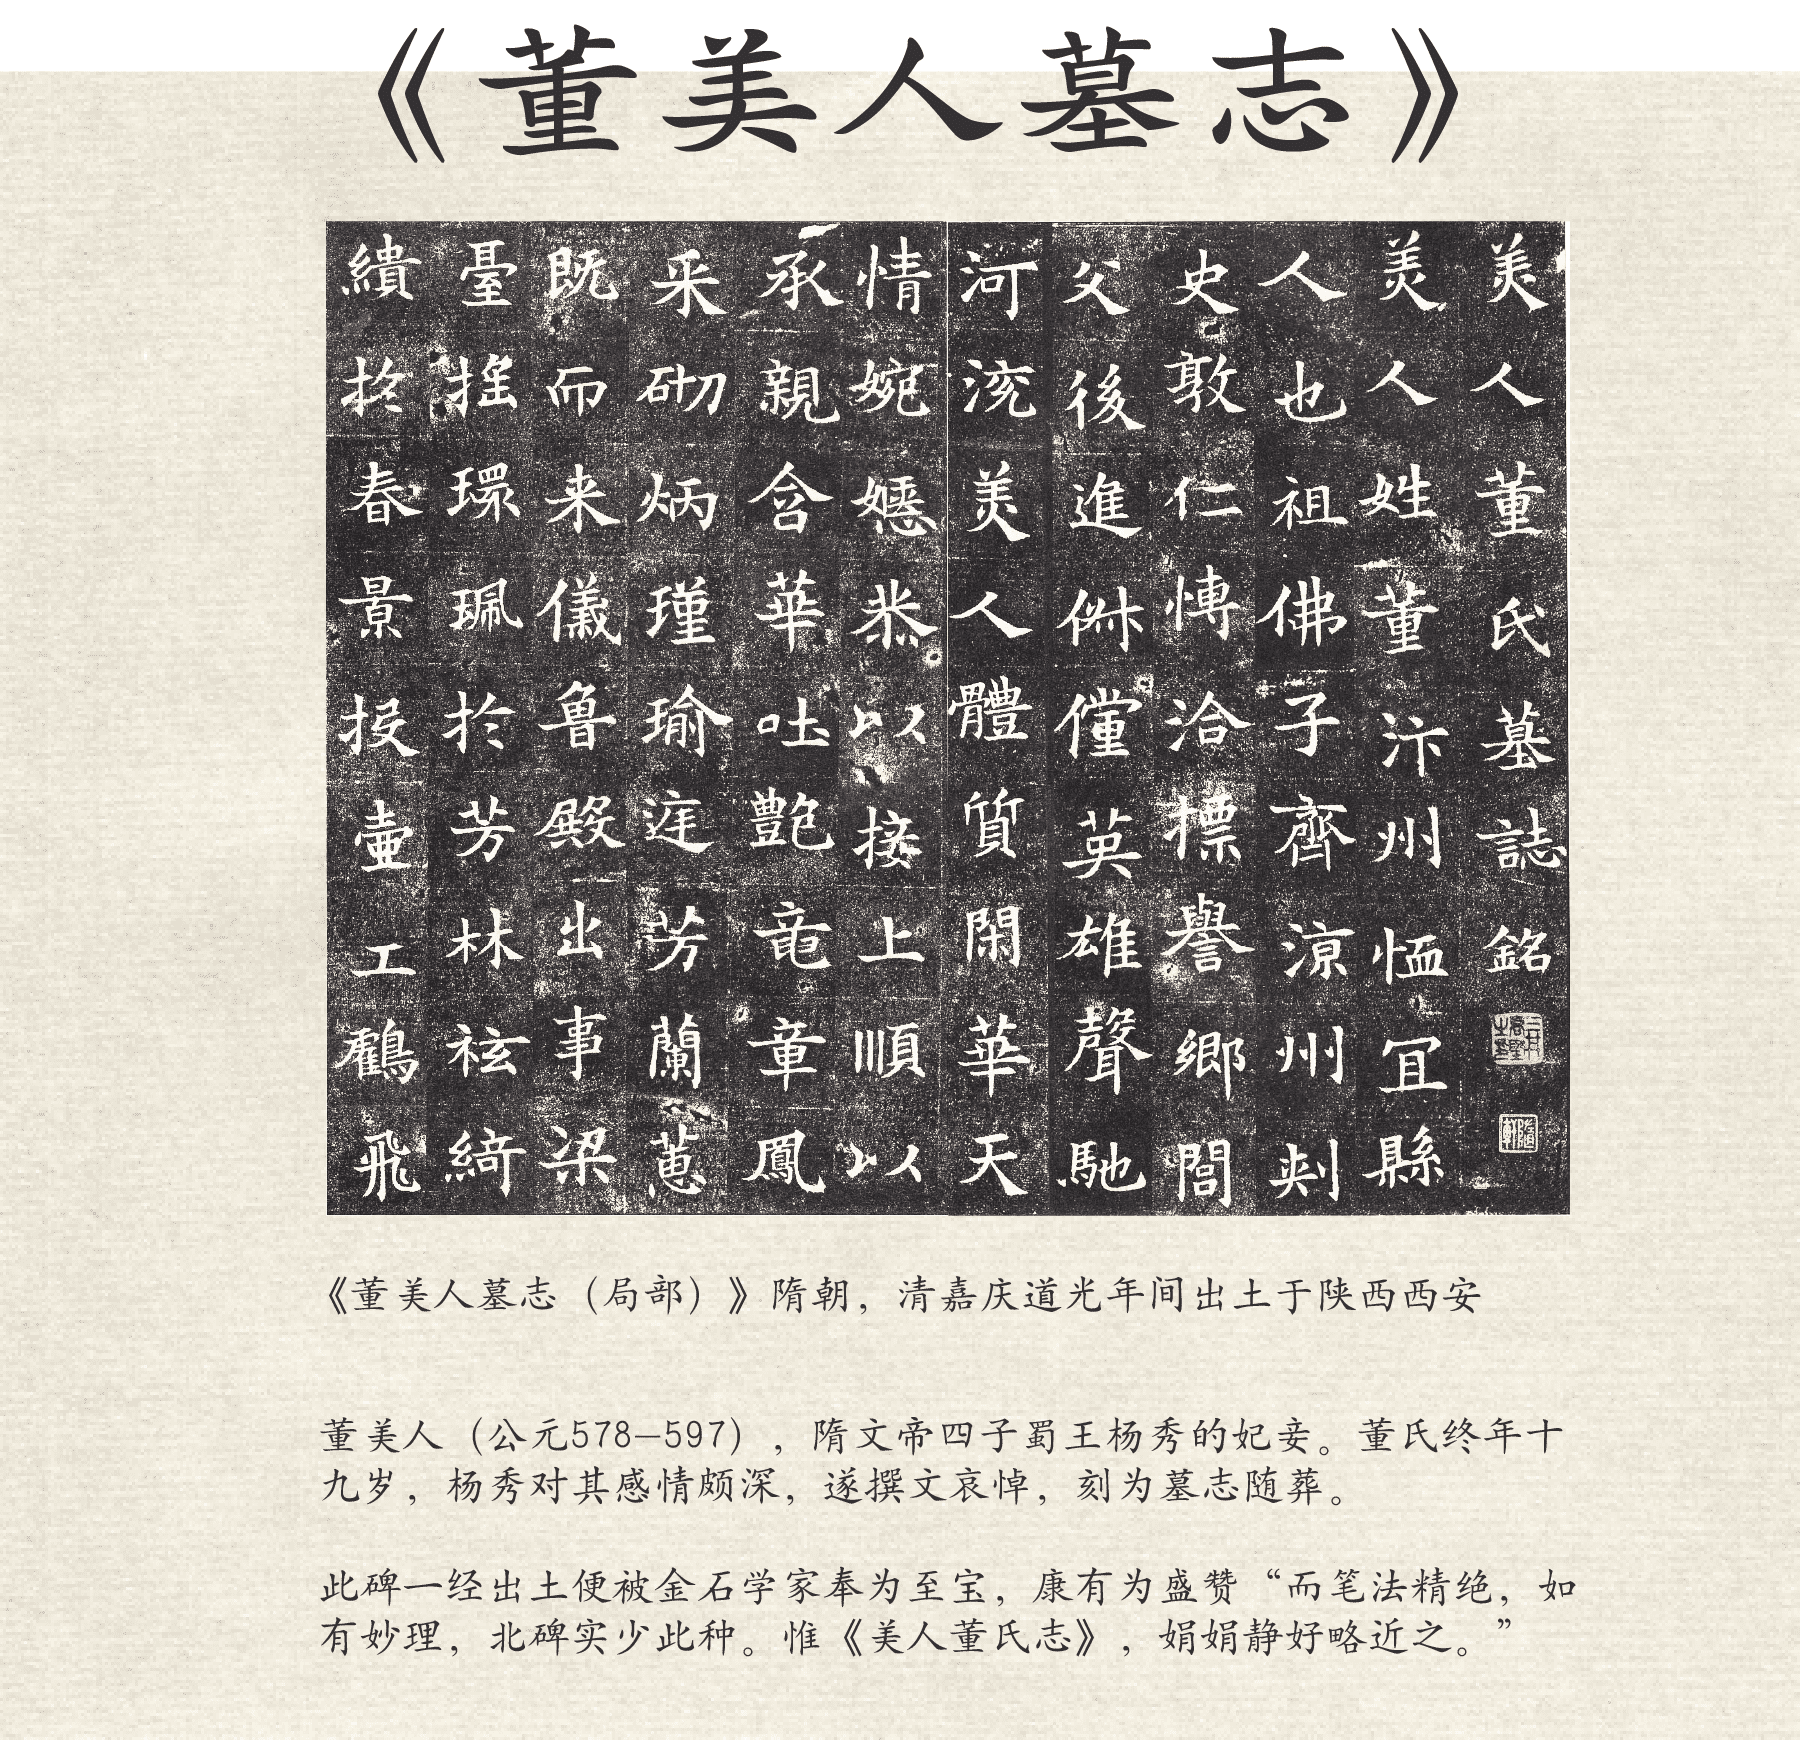 《董美人墓志》
美人董氏墓誌銘
美人姓董汴州恤冝縣
人也祖佛子齊涼州刾
史敦仁博洽摽譽鄉閭
父後進俶儻英雄聲馳
河渷美人體質閑華天
情婉嫕恭以接上順以
承親含華吐艷竜章鳳
采砌炳瑾瑜庭芳蘭蕙
既而来儀魯殿出事梁
臺搖環珮於芳林袨綺
繢於春景投壺工鸖飛
《董美人墓志（局部）》隋朝，清嘉庆道光年间出土于陕西西安
董美人（公元578—597），隋文帝四子蜀王杨秀的妃妾。董氏终年十
九岁，杨秀对其感情颇深，遂撰文哀悼，刻为墓志随葬。
此碑一经出土便被金石学家奉为至宝，康有为盛赞“而笔法精绝，如
有妙理，北碑实少此种。惟《美人董氏志》，娟娟静好略近之。”